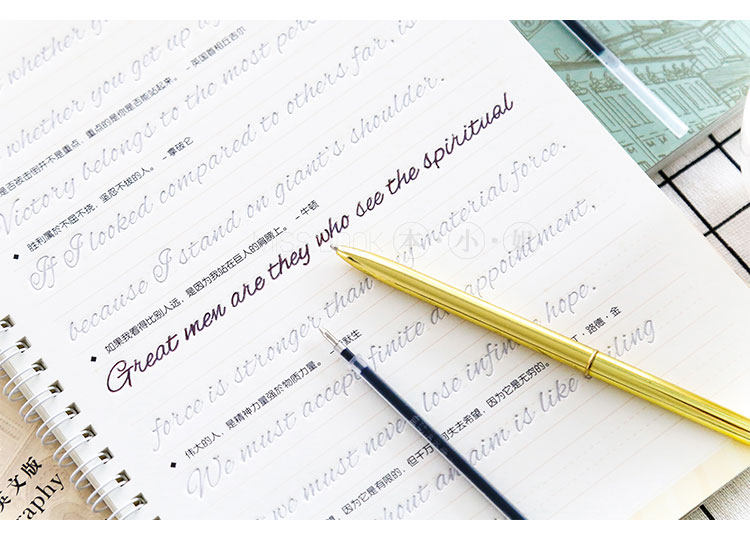 whether you get up a
英国首相丘吉尔
Victory belongs to the most per
是否被击倒并不是重点，重点的是你是否能站起来。
胜利属於不屈不挠，坚忍不拔的人。 -拿破仑
If I looked compared to others far, is
because I stand on giant's shoulder.
如果我看得比别人远，是因为我站在巨人的肩膀上。 -牛顿
Great men are they who see the spiritual
force is stronger than any material force.
伟大的人，是精神力量强於物质力量。 默生
We must accept finite disappointment,
we must never lose infinite hope.
因为它是有限的，但千万 失去希望，因为它是无穷的。 丁·路德·金
out an aim is like sailing
英文版
raphy
本·小·姐